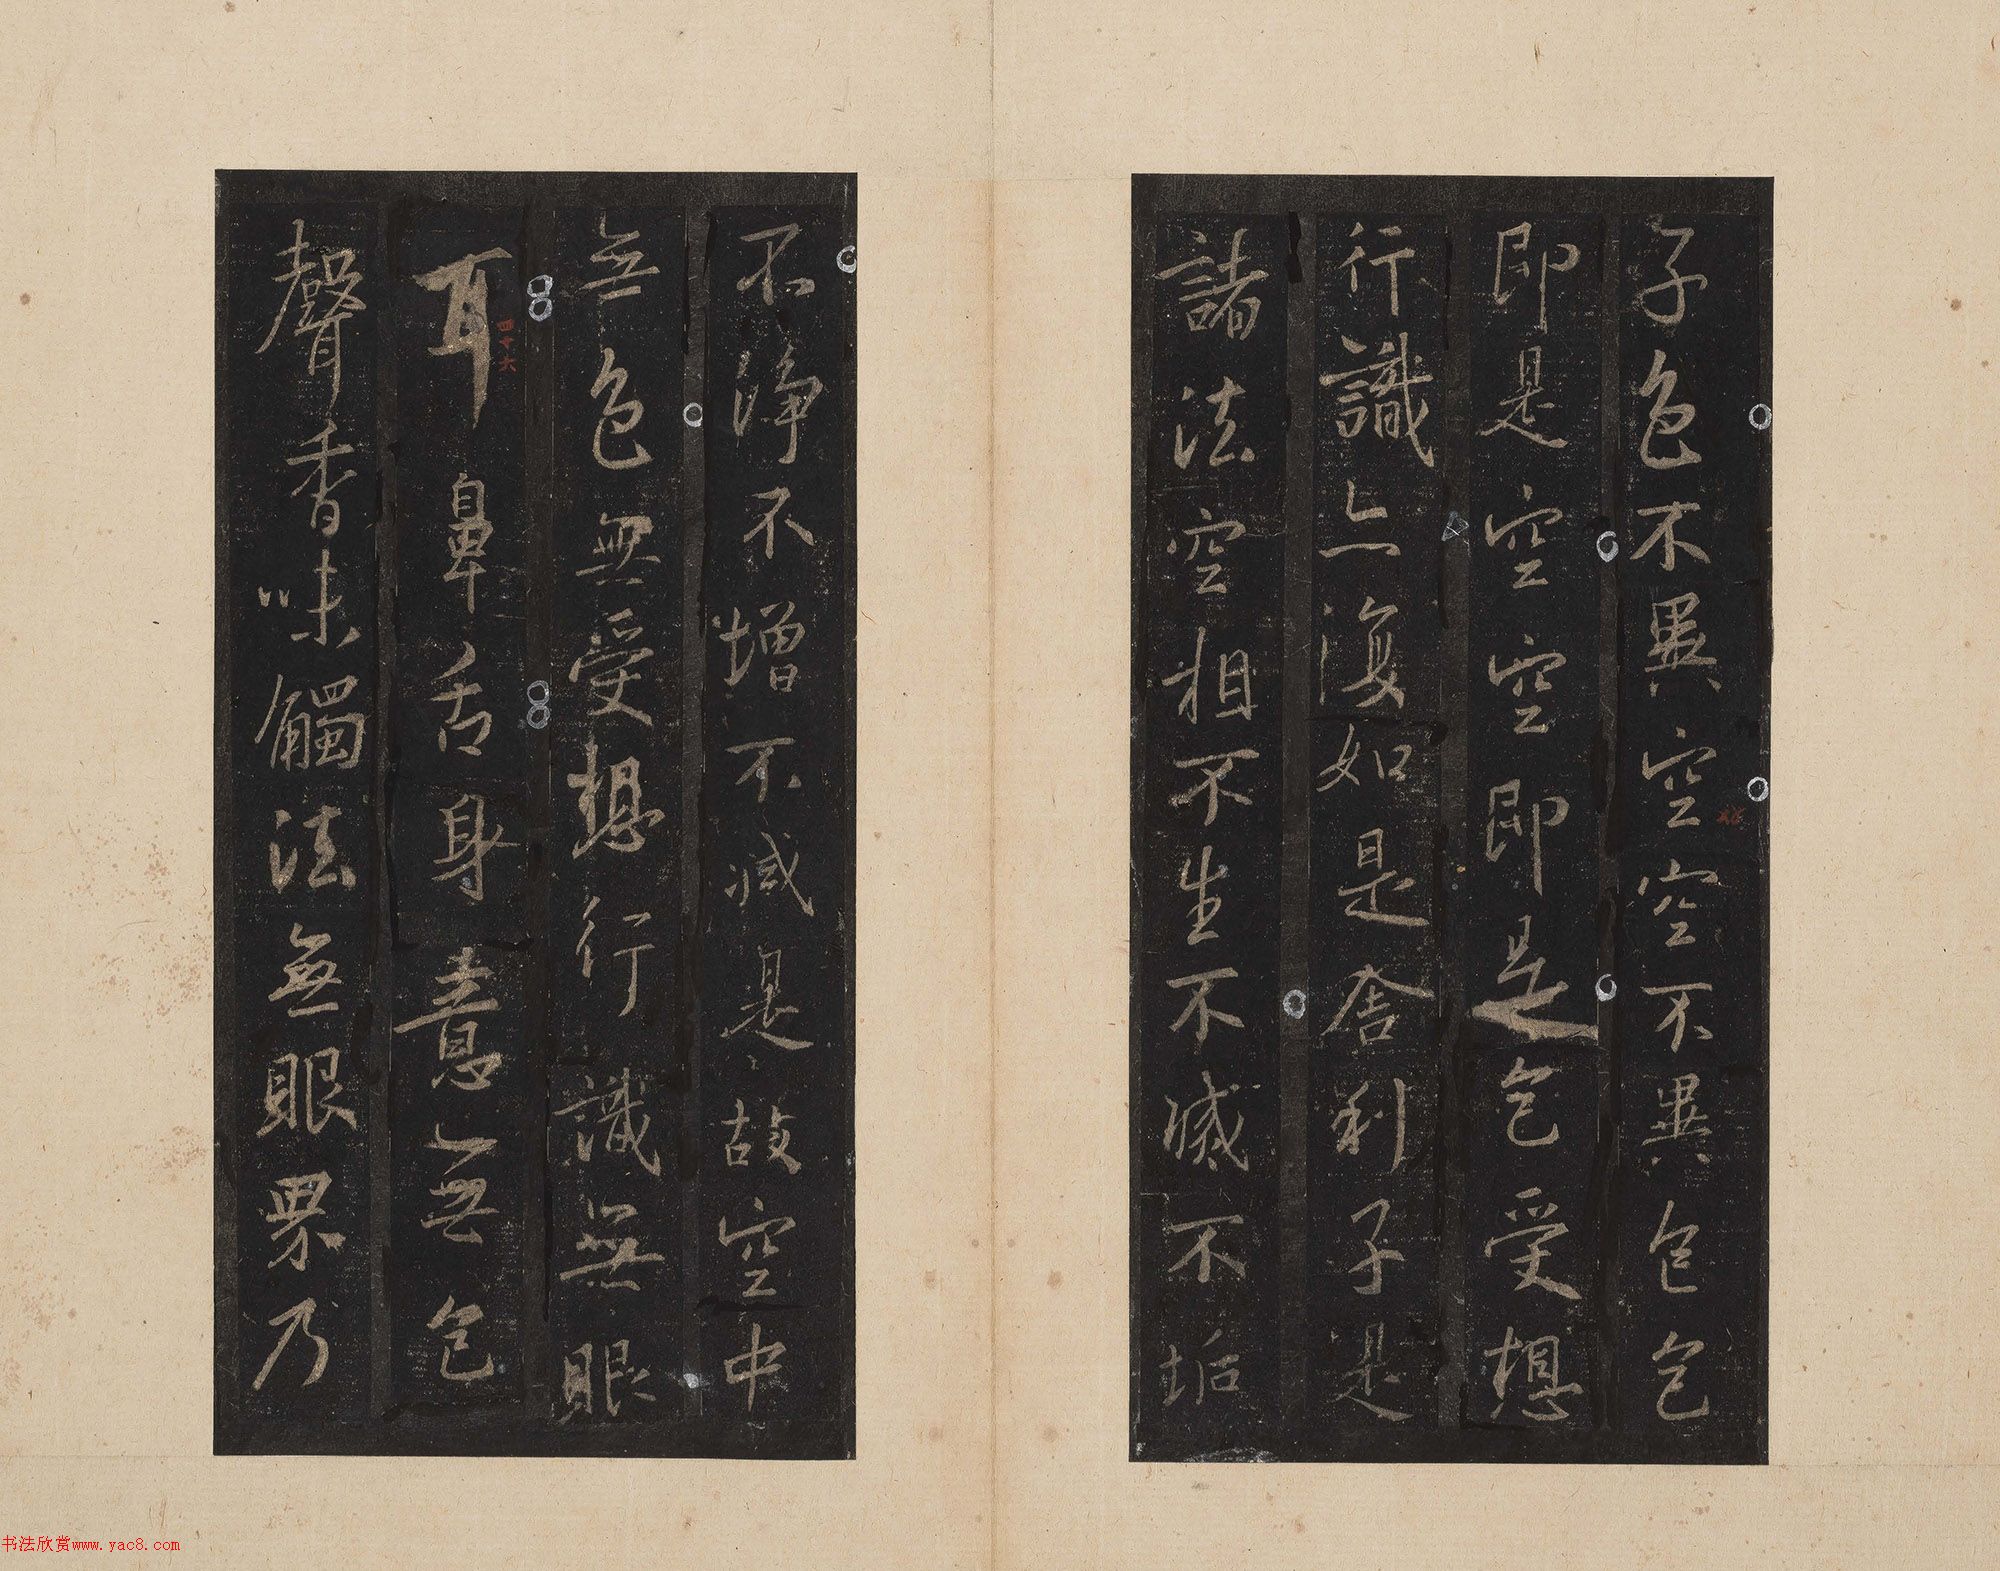 子色不異空空不異色色
即是空空即是色受想
行識亦復如是舍利子是
諸法空相不生不滅不垢
不淨不增不減是故空中
無色無受想行識無眼
耳鼻舌身意無色
聲香味觸法無眼界乃
四十六
书法欣赏www.yac8.com